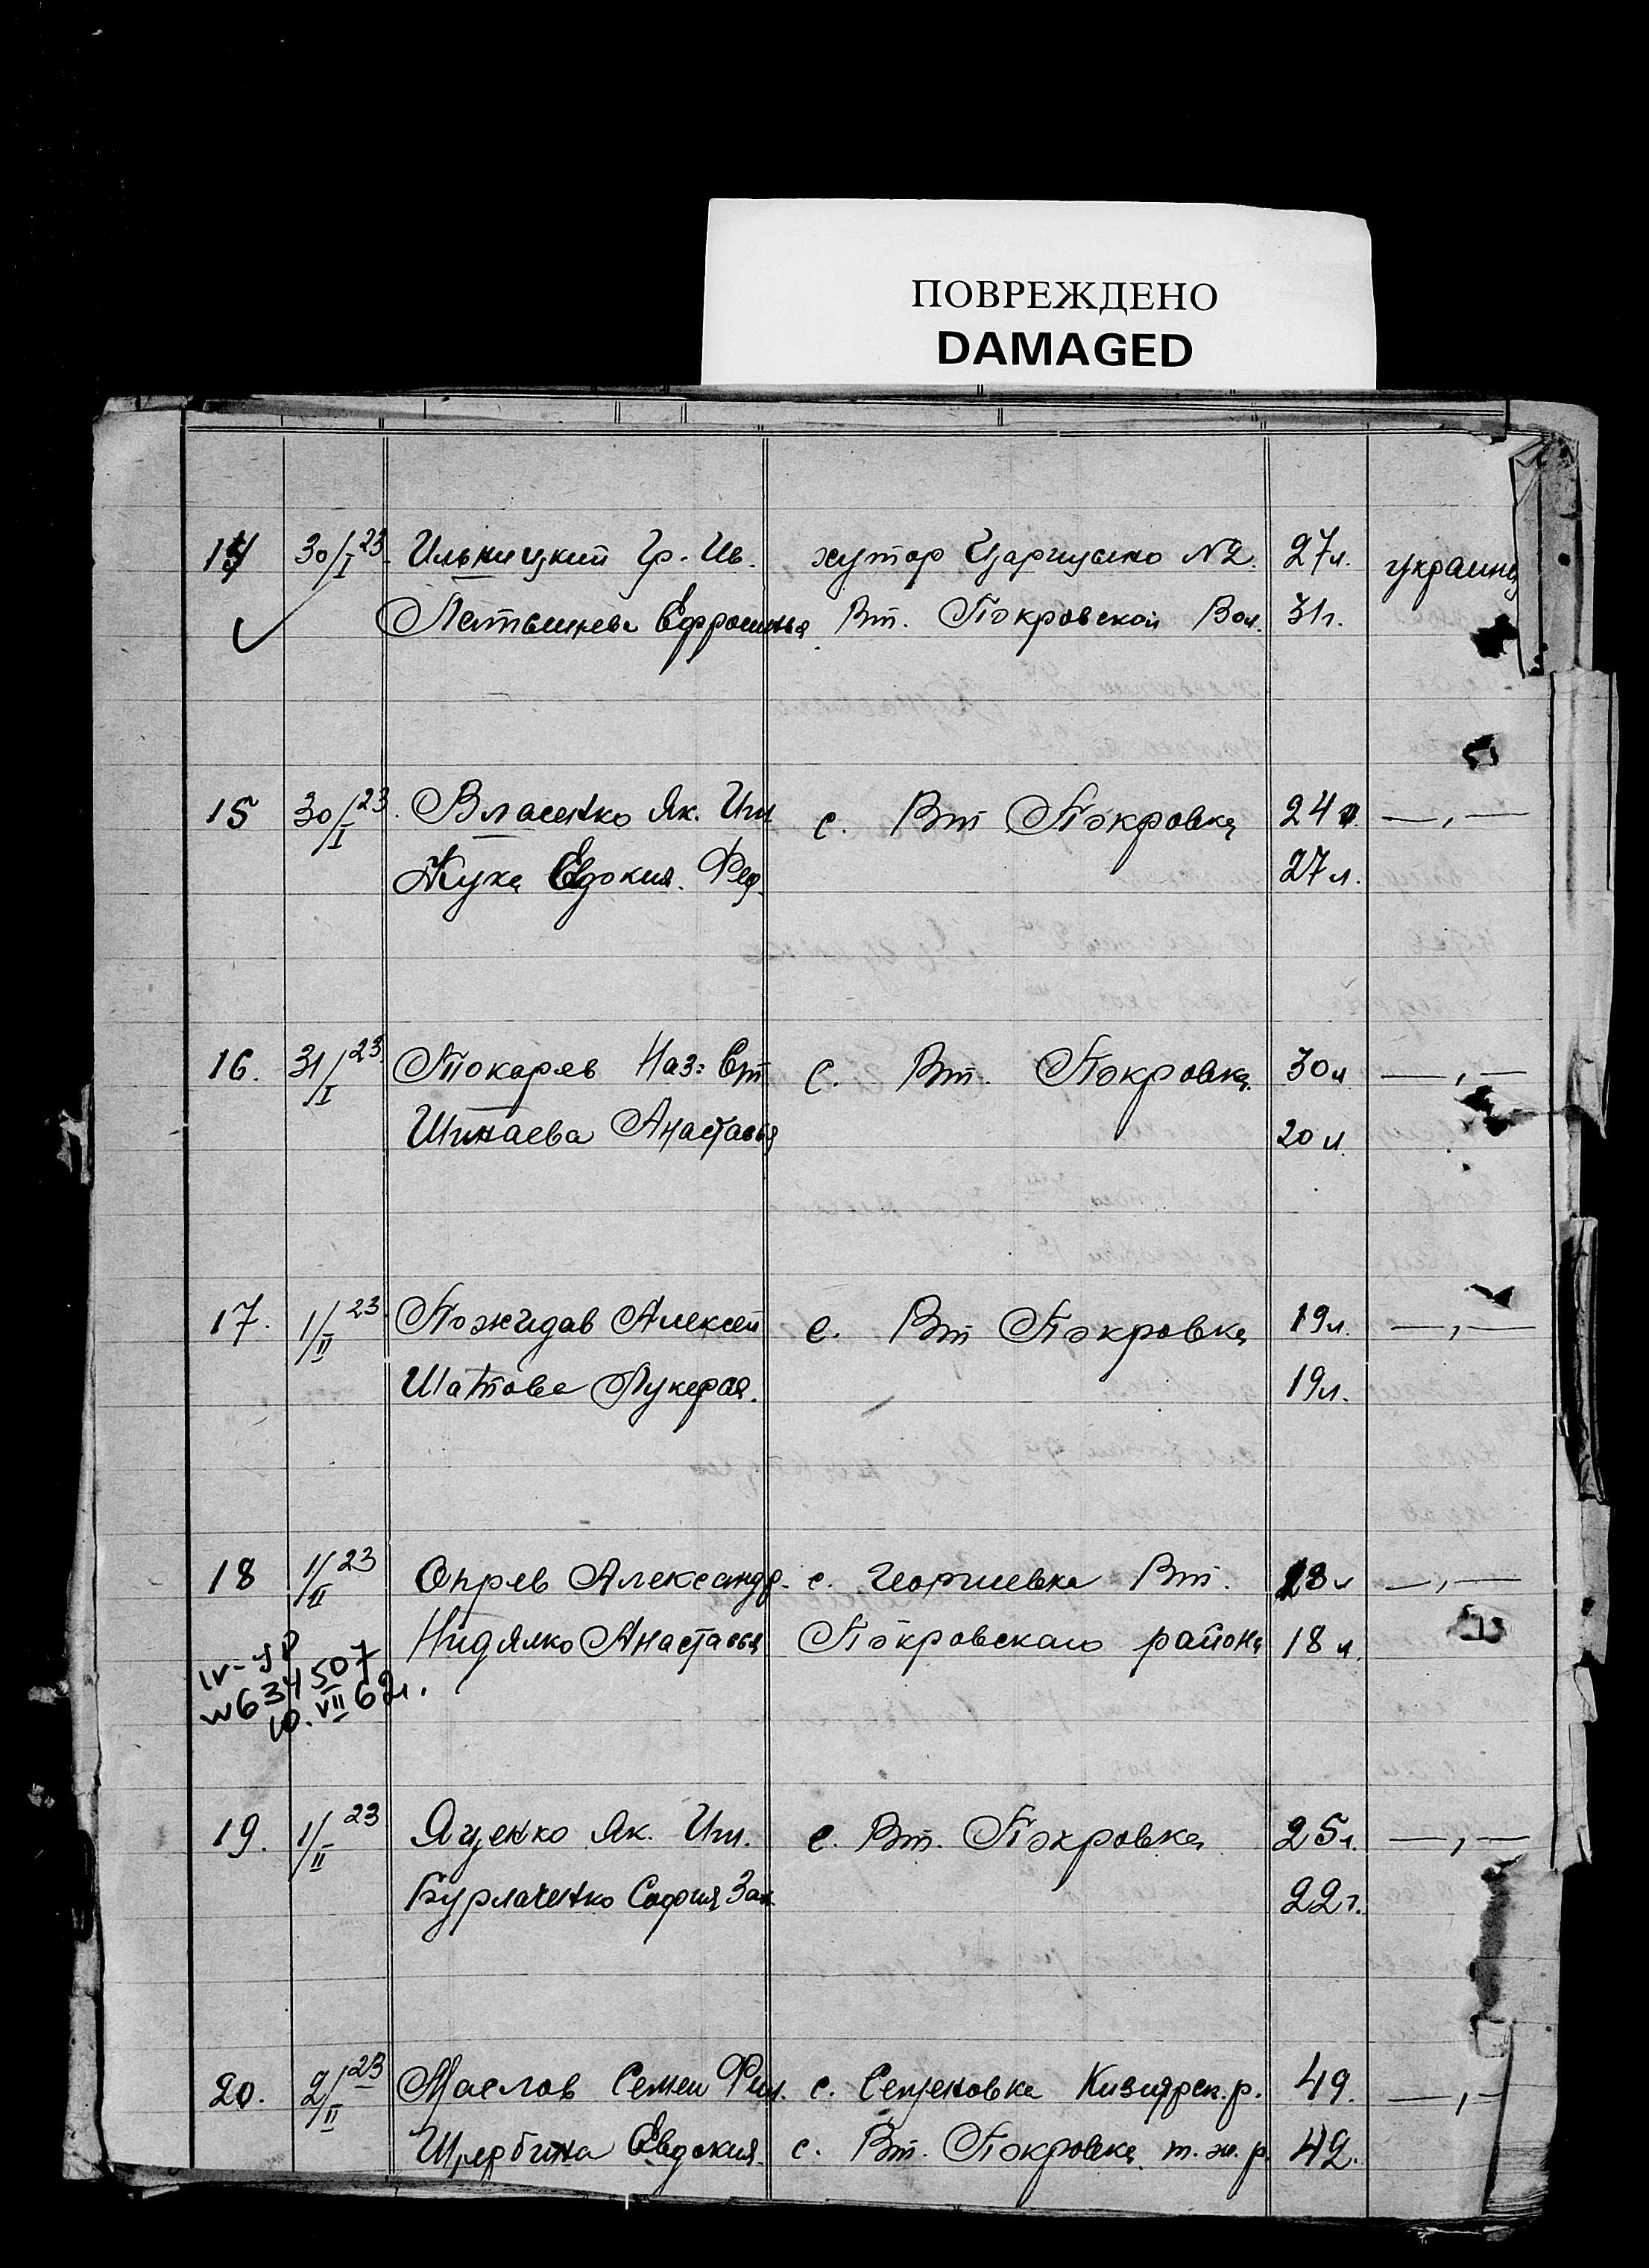 ПОВРЕЖДЕНО
DAMAGED
14 30/I 23. Ильницкий Гр. Ив. хутор № 2. 27л. украинц
Ефросинья Вт. Покровской Вол. 31г.
15 30/I 23. Власенко Як. Игн с. Вт Покровка 24 —„—
Жука Евдокия. Фед. 27 л.
16. 31/I 23. Токарев Наз. Ст с. Вт. Покровка. 30л —„—
Шинаева Анастасья 20 л.
17. 1/II 23. Пожидав Алексей с. Вт Покровка 19л. —„—
Шатова Лукерая. 19л.
18 1/II 23 Опрев Александр. с. Георгиевка Вт. 18л —„—
Нидялко Анастасья Покровского района 18 л.
IV-УР
№634507
10. VII 62г.
19. 1/II 23 Яценко Як. Игн. с. Вт. Покровка 25л. —„—
Бурлаченко София Зах 22г.
20. 2/II 23 Маслов Семен Фил. с. Семеновка Кизиярск. р. 49. —„—
Щербина Евдокия. с. Вт. Покровка т. ж. р. 42.